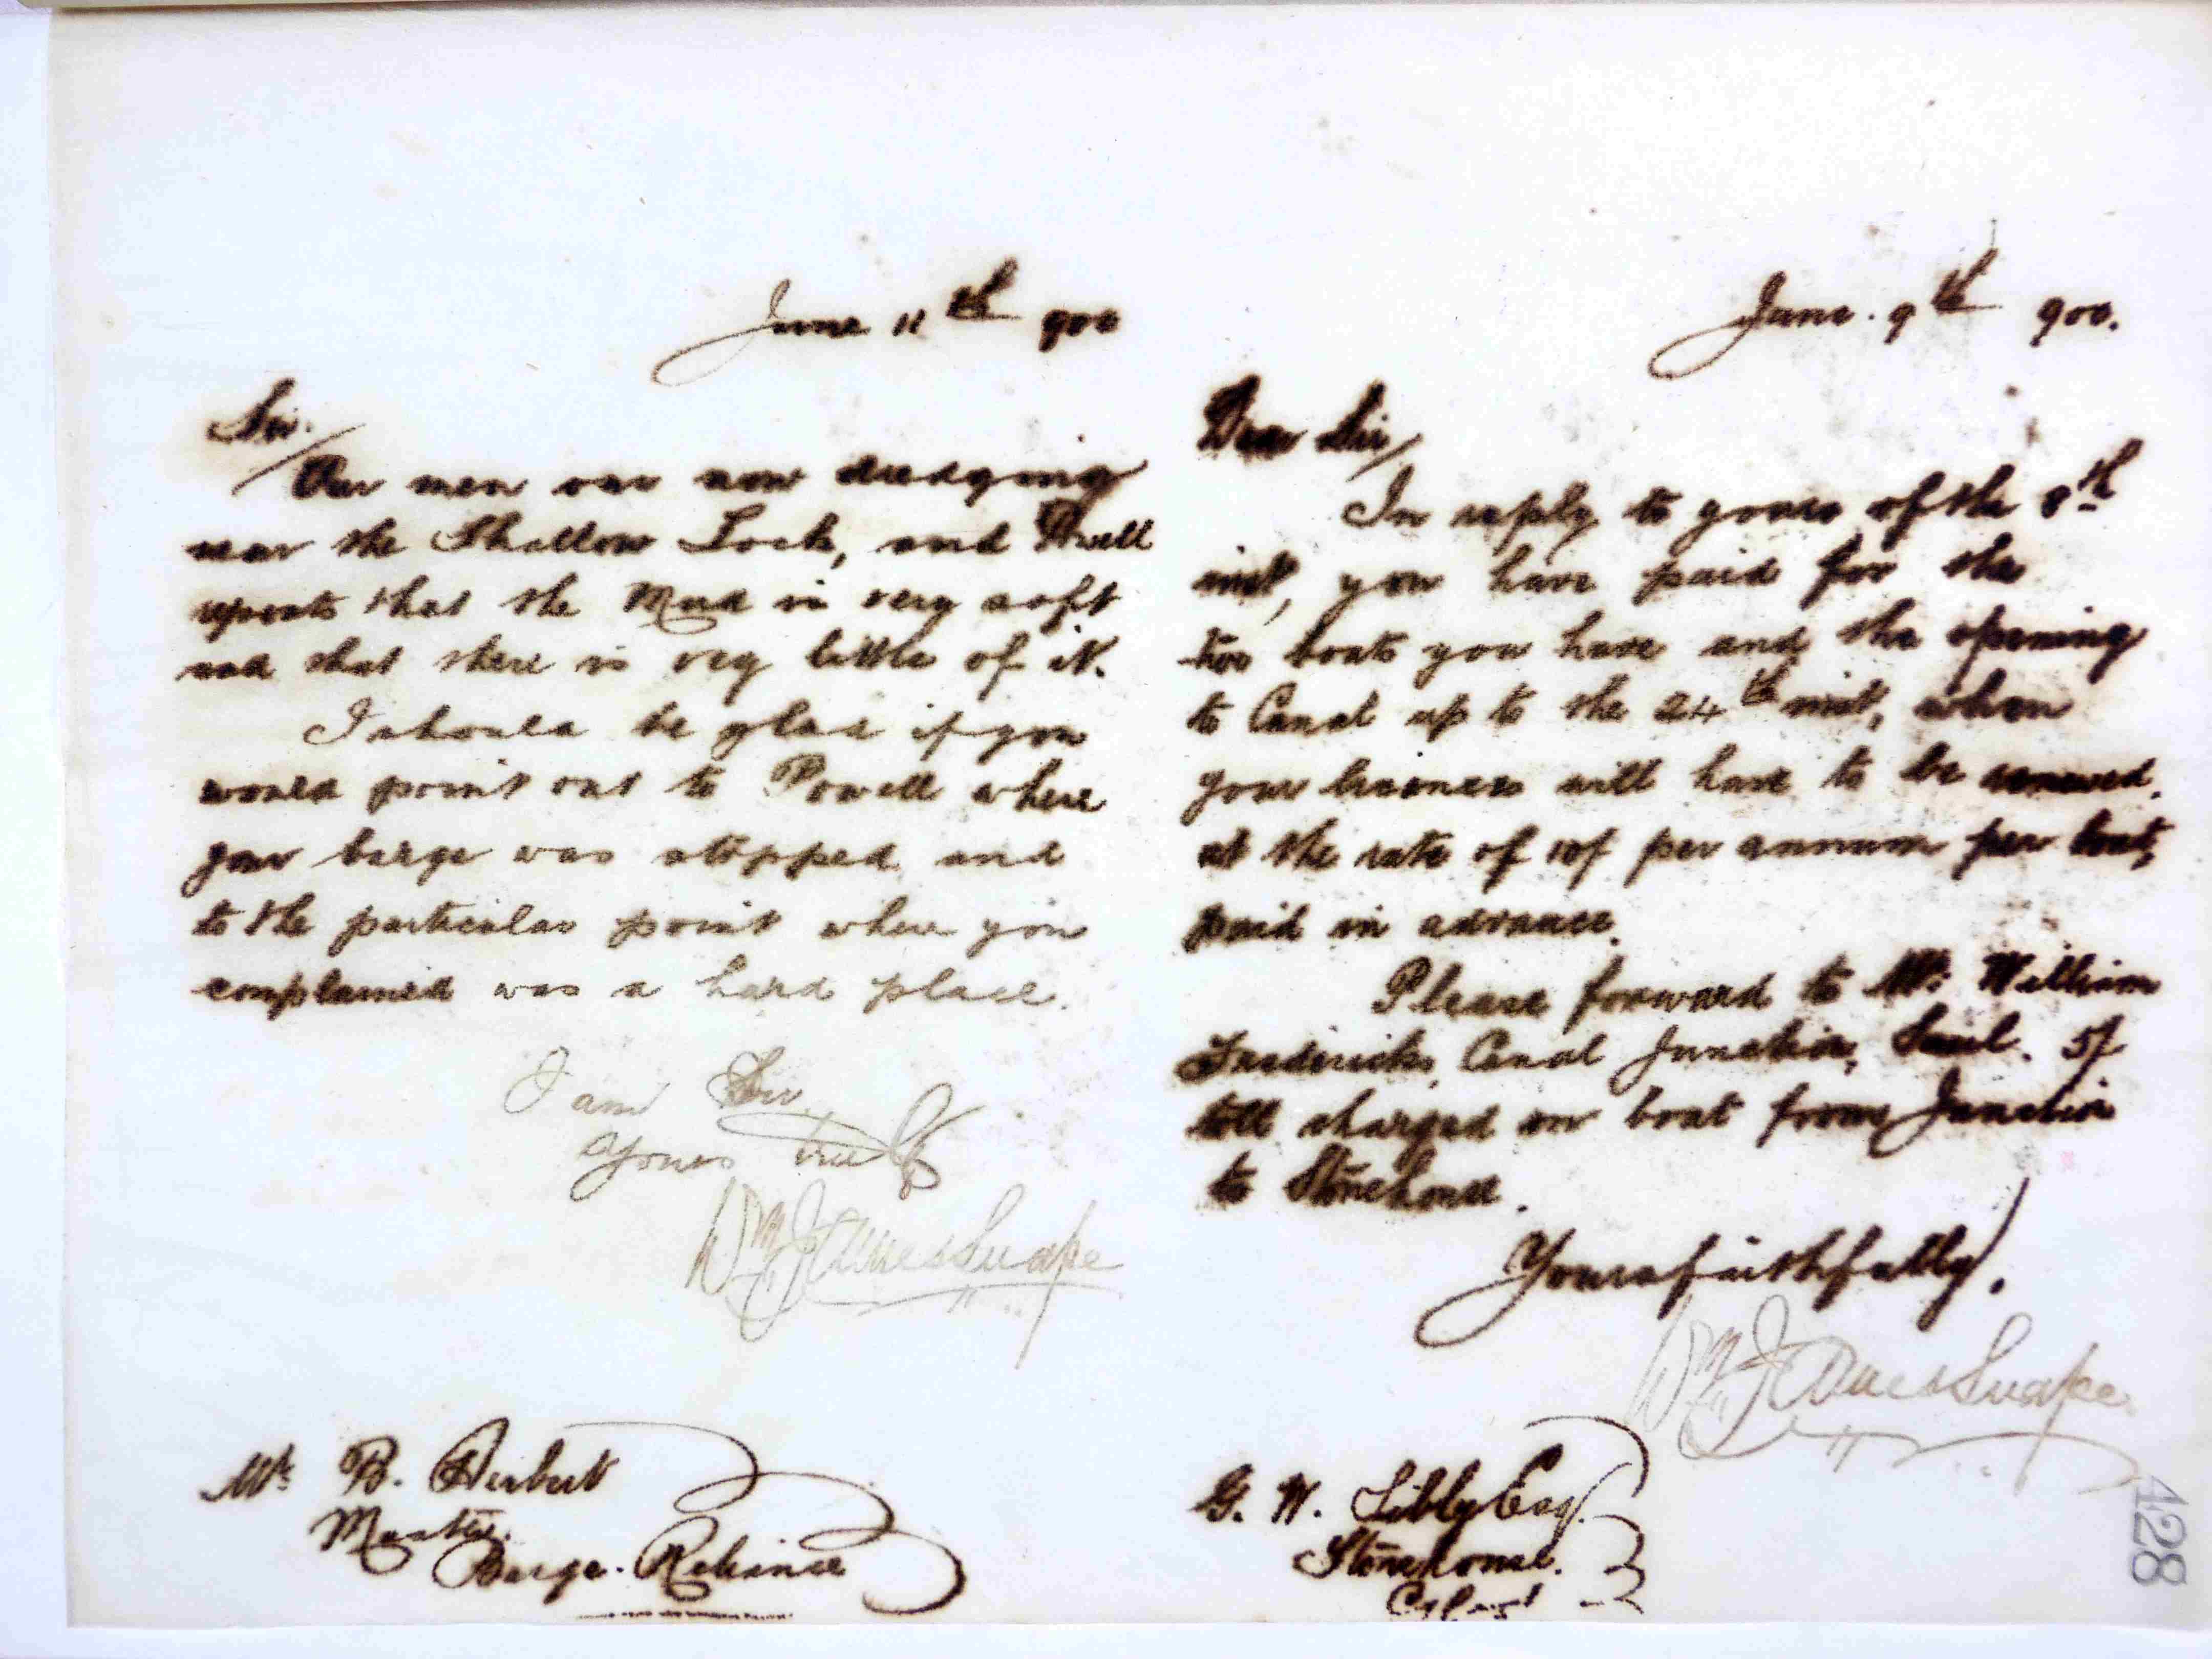 June 11th 900
Sir.
Our men are now dredging
near the Shallow Lock, and Powell
reports that the Mud is very soft
and that there is very little of it.
I should be glad if you
would point out to Powell where
your barge was stopped and
to the particular point where you
complained was a hard place.
I am Sir
Yours truly
Wm James Snape
Mr. B. Herbert
Master.
Barge. Reliance
June. 9th 900.
Dear Sir,
In reply to yours of the 8th
inst, you have paid for the
two boats you have and the opening
to Canal up to the 24th inst, when
your licences will have to be renewed.
at the rate of 10/ per annum per boat,
paid in advance.
Please forward to Mr. William
Fredericks, Canal Junction, Saul. 5/
toll charged on boat from Junction
to Stonehouse.
Yours faithfully,
Wm James Snape
G. W. Sibly Esq.
Stonehouse.
428